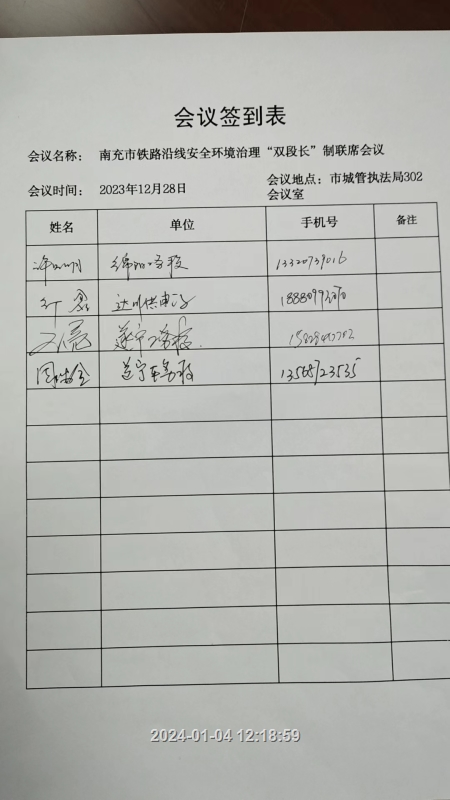 会议签到表
会议名称： 南充市铁路沿线安全环境治理“双段长”制联席会议
会议时间： 2023年12月28日
会议地点：市城管执法局302会议室
姓名 单位 手机号 备注
绵阳工务段 13320739016
达州供电段
遂宁工务段
遂宁车务段 13568723535
2024-01-04 12:18:59